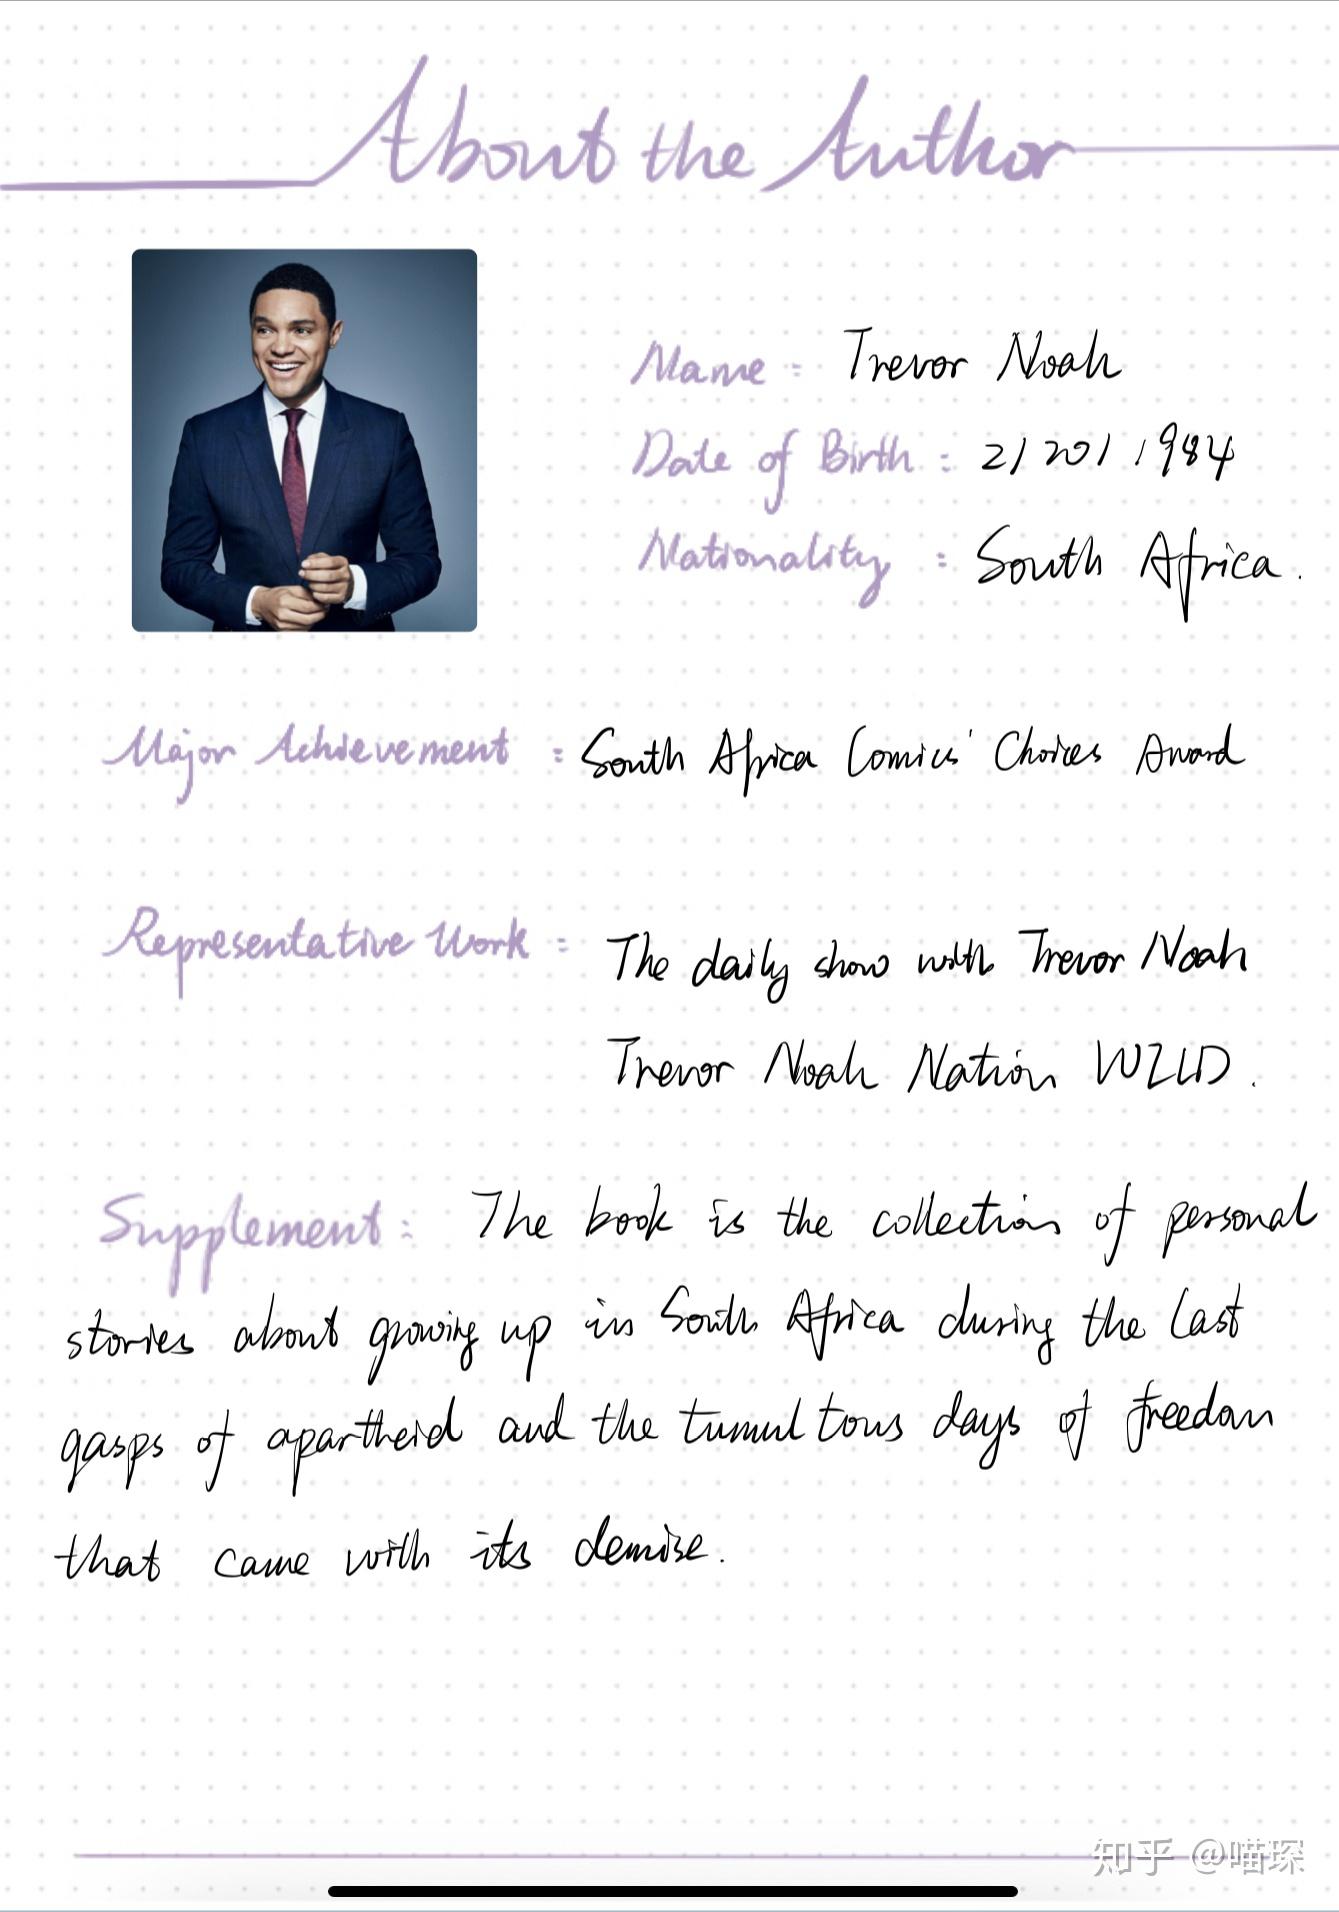 About the Author
Name : Trevor Noah
Date of Birth : 2/20/1984
Nationality : South Africa.
Major Achievement : South Africa Comics' Choices Award
Representative Work : The daily show with Trevor Noah
Trevor Noah Nation WZLD.
Supplement : The book is the collection of personal
stories about growing up in South Africa during the last
gasps of apartheid and the tumultous days of freedom
that came with its demise.
知乎 @喵琛